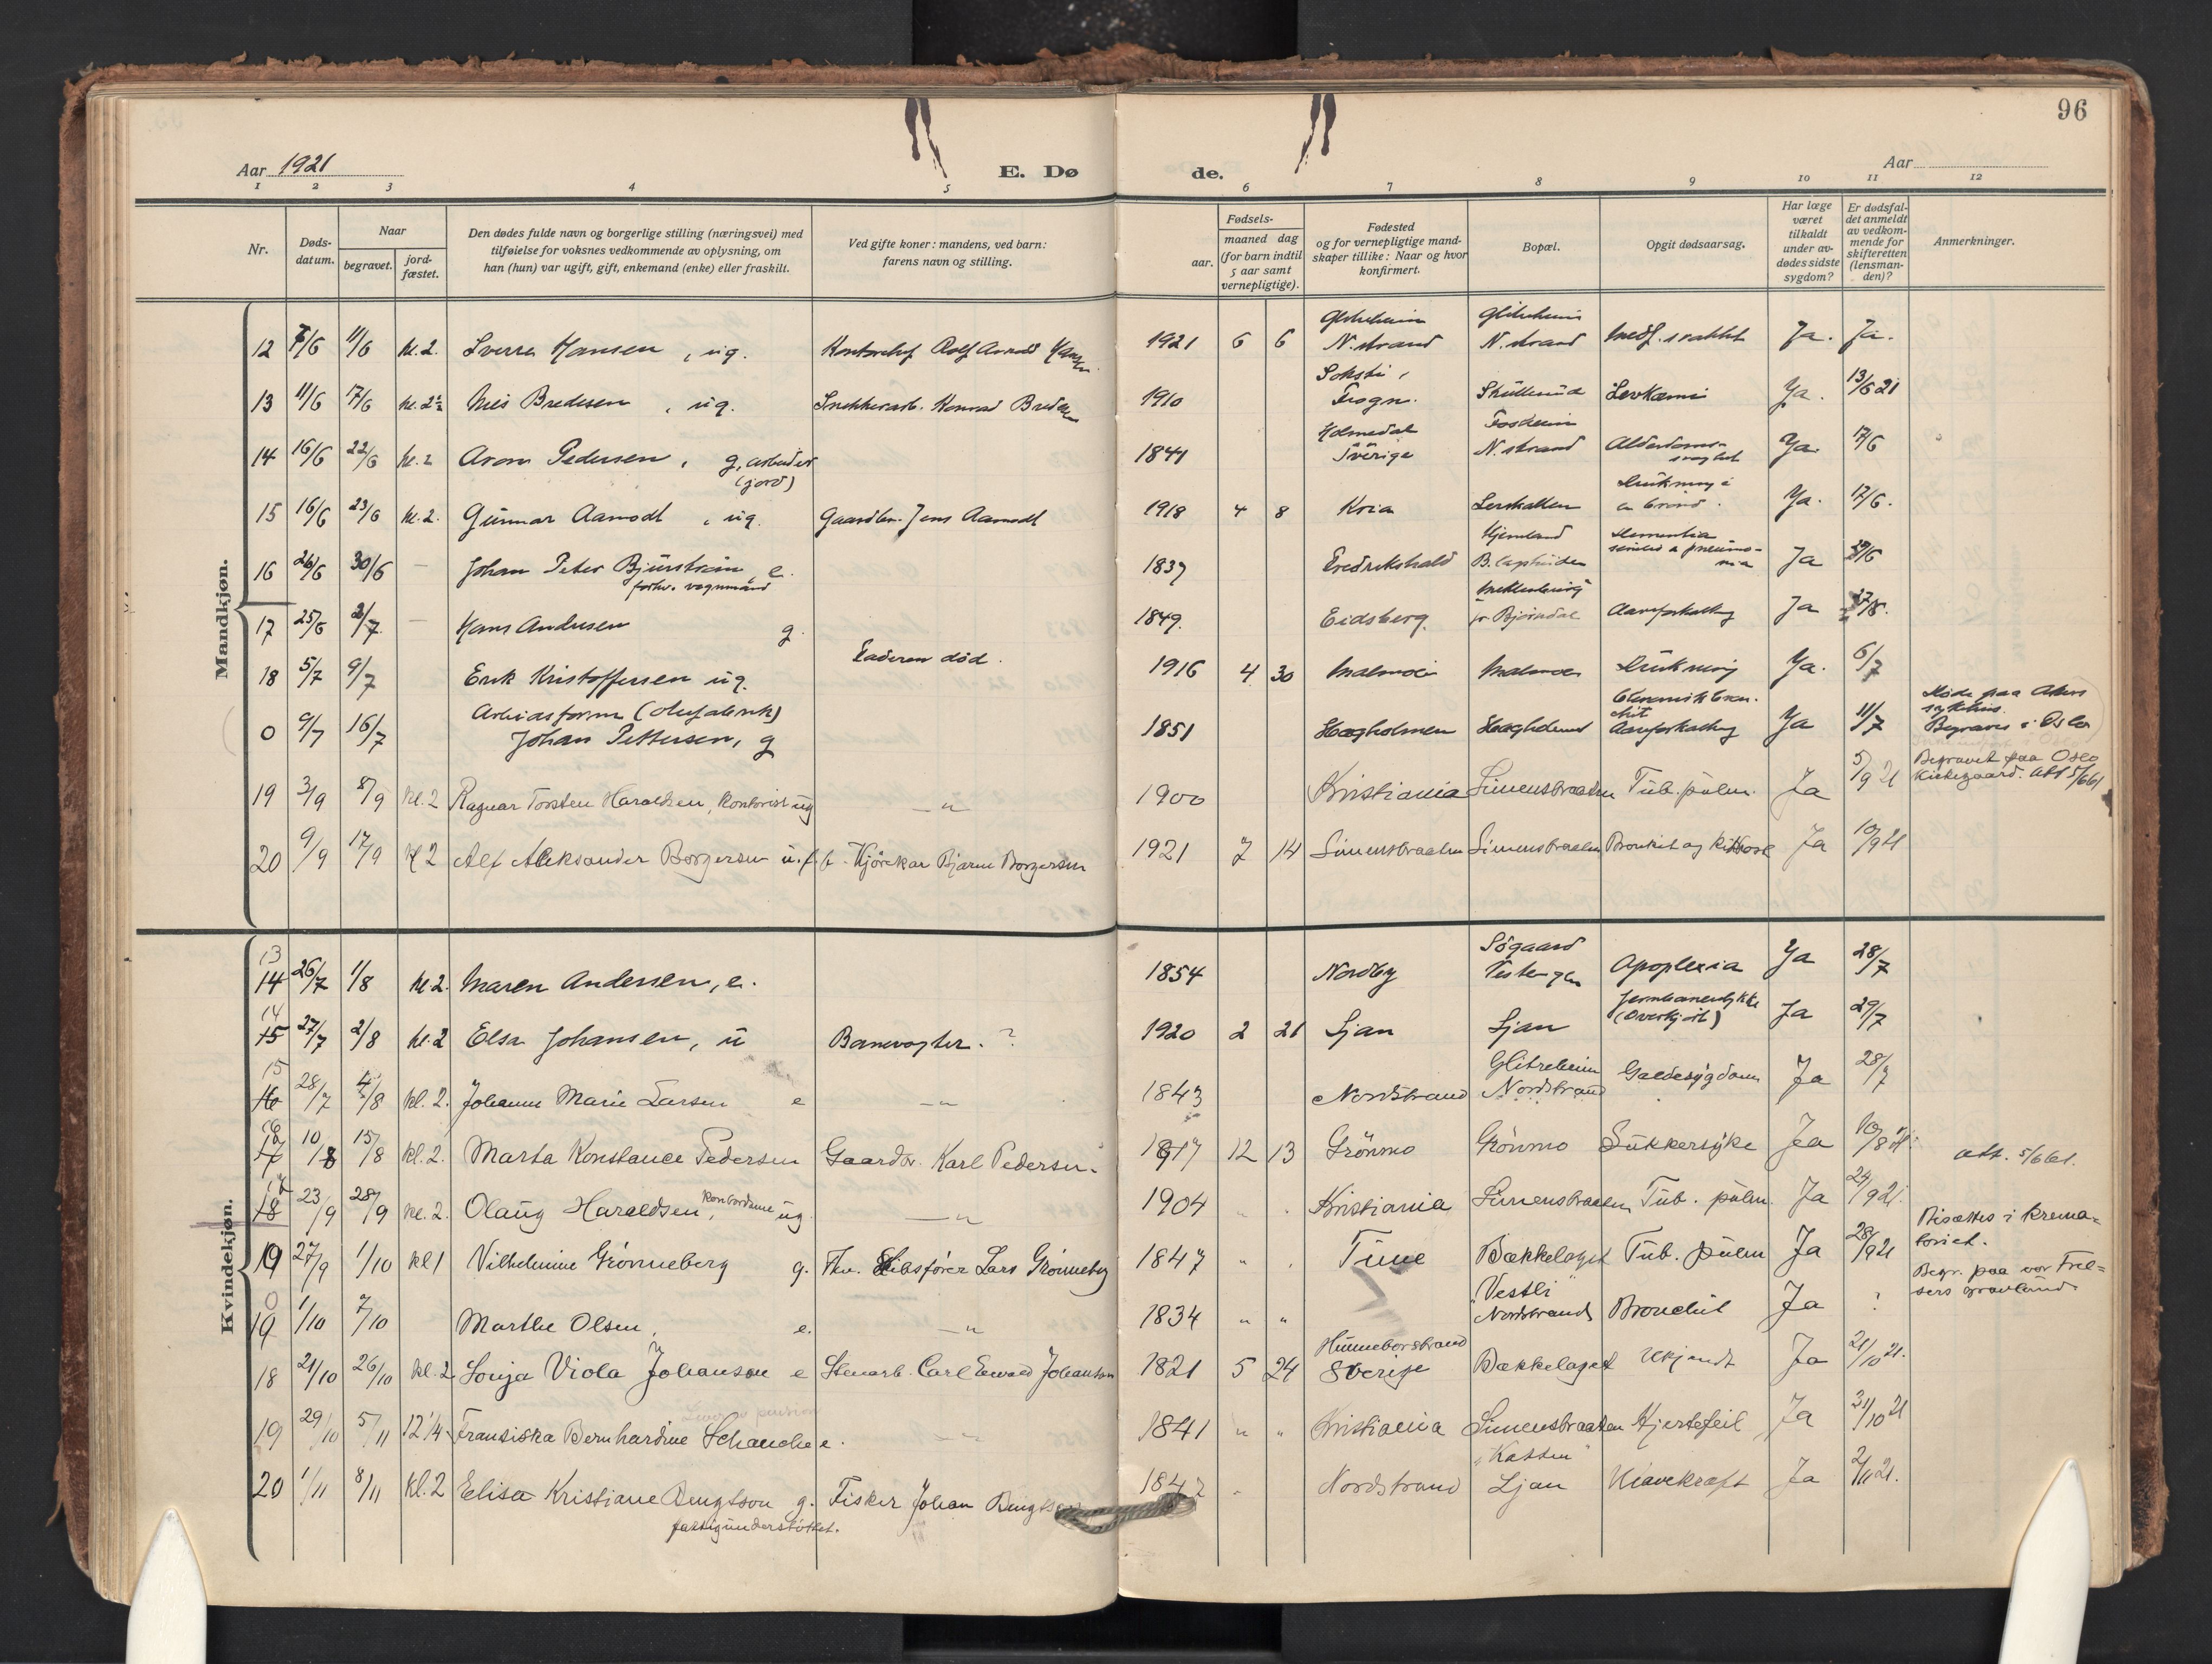 96
Aar 1921
E. Dø
de.
Aar
1 2 3 4 5 6 7 8 9 10 11 12
Nr.
Døds-
datum.
Naar
begravet.
jord-
fæstet.
Den dødes fulde navn og borgerlige stilling (næringsvei) med
tilføielse for voksnes vedkommende av oplysning, om
han (hun) var ugift, gift, enkemand (enke) eller fraskilt.
Ved gifte koner: mandens, ved barn:
farens navn og stilling.
Fødsels-
aar.
maaned dag
(for barn indtil
5 aar samt
vernepligtige).
Fødested
og for vernepligtige mand-
skaper tillike: Naar og hvor
konfirmert.
Bopæl.
Opgit dødsaarsag.
Har læge
været
tilkaldt
under av-
dødes sidste
sygdom?
Er dødsfal-
det anmeldt
av vedkom-
mende for
skifteretten
(lensman-
den)?
Anmerkninger.
Mandkjøn.
12 7/6 11/6 kl. 2. Sverre Hansen, ug. Kontorchef Rolf Arnold Hansen 1921 6 6 N. strand N. strand Medf. svakhet Ja. Ja.
13 11/6 17/6 kl. 2½ Nils Bredesen, ug. Snekkerarb. Konrad Bredesen 1910 Frogn. Skullerud Levkæmi Ja. 13/6 21
14 16/6 22/6 kl. 2 Aron Pedersen, g, arbeider
(jord)
1841 Holmedal
Sverige N. strand Alderdoms-
svaghet Ja. 17/6
15 16/6 23/6 kl. 2. Gunnar Aamodt, ug. Gaardbr. Jens Aamodt 1918 4 8 Kria Lerskallen Drukning i
en brønd. Ja. 17/6.
16 26/6 30/6 — Johan Peter Bjürström e.
forhv. vognmand
1839 Fredrikshald Dementia
senilis a pneumo-
nia Ja
17 25/6 2/7 — Hans Andersen g. 1849. Eidsberg. Bjørndal Aareforkalkning Ja
18 5/7 9/7 Erik Kristoffersen ug. Faderen død. 1916 4 30 Malmøen Malmøen Drukning Ja. 6/7
0 9/7 16/7 Arbeidsform (Oljefabrik)
Johan Pettersen, g 1851 Hægholmen Hægholmen Chronisk bron-
chit
Aareforkalkning Ja 11/7 Døde paa Akers
sykehus.
Begraves i Oslo
19 3/9 8/9 kl. 2 Ragnar Torsten Haraldsen, kontorist ug —"— 1900 Kristiania Simensbraaten Tub. pulm. Ja 5/9 21 Begravet paa Oslo
Kirkegaard. att 5/6 61
20 9/9 17/9 kl 2 Alf Aleksander Borgersen u. f. b. Kjørekar Bjarne Borgersen 1921 7 14 Simensbraaten Simensbraaten Bronkit og Kikhoste Ja 10/9 21
Kvindekjøn.
13
14 26/7 1/8 kl 2. Maren Andersen, e. 1854 Nordby Søgaard
Apoplexia Ja 28/7
14
15 27/7 2/8 kl. 2 Elsa Johansen, u Barnevogter. ? 1920 2 21 Ljan Ljan Jernbaneulykke
(Overkjørt) Ja 29/7
15
16 28/7 4/8 kl. 2. Johanne Marie Larsen e —"— 1843 Nordstrand Glitreheim
Nordstrand Galdesygdom Ja 28/7
16
17 10/8 15/8 kl. 2. Marta Konstance Pedersen Gaardbr. Karl Pedersen. 1917 12 13 Grönmo Grönmo Sukkersyke Ja 10/8 21. att. 5/6 61.
17
18 23/9 28/9 kl. 2. Olaug Haraldsen, kontordame ug. —"— 1904 Kristiania Simensbraaten Tub. pulm. Ja 24/9 21.
19 27/9 1/10 kl 1 Vilhelmine Grönneberg g. Fhv. Skibsfører Lars Grönneberg 1847 Tune Bækkelaget Tub. pulm Ja 28/9 21 Bisættes i krema-
toriet.
0
19 1/10 7/10 Marthe Olsen, e. —"— 1834 " " "Vestli"
Nordstrand Bronchit Ja ? Begr. paa vor Frel-
sers gravlund.
18 21/10 26/10 kl. 2 Sonja Viola Johanson e Stenarb. Carl Edvard Johanson 1821 5 24 Hunneborstrand
Sverige Bækkelaget Ukjendt Ja 21/10 21.
19 29/10 5/11 12 1/4 Fransiska Bernhardine Schanche e. 1841 " " Kristiania Simensbraaten Hjertefeil Ja 31/10 21
20 1/11 8/11 kl. 2 Elisa Kristiane Bengtson g. Fisker Johan Bengtson
fattigunderstøttet.
1847 Nordstrand "Kasten"
Ljan Mavekræft Ja 2/11 21.